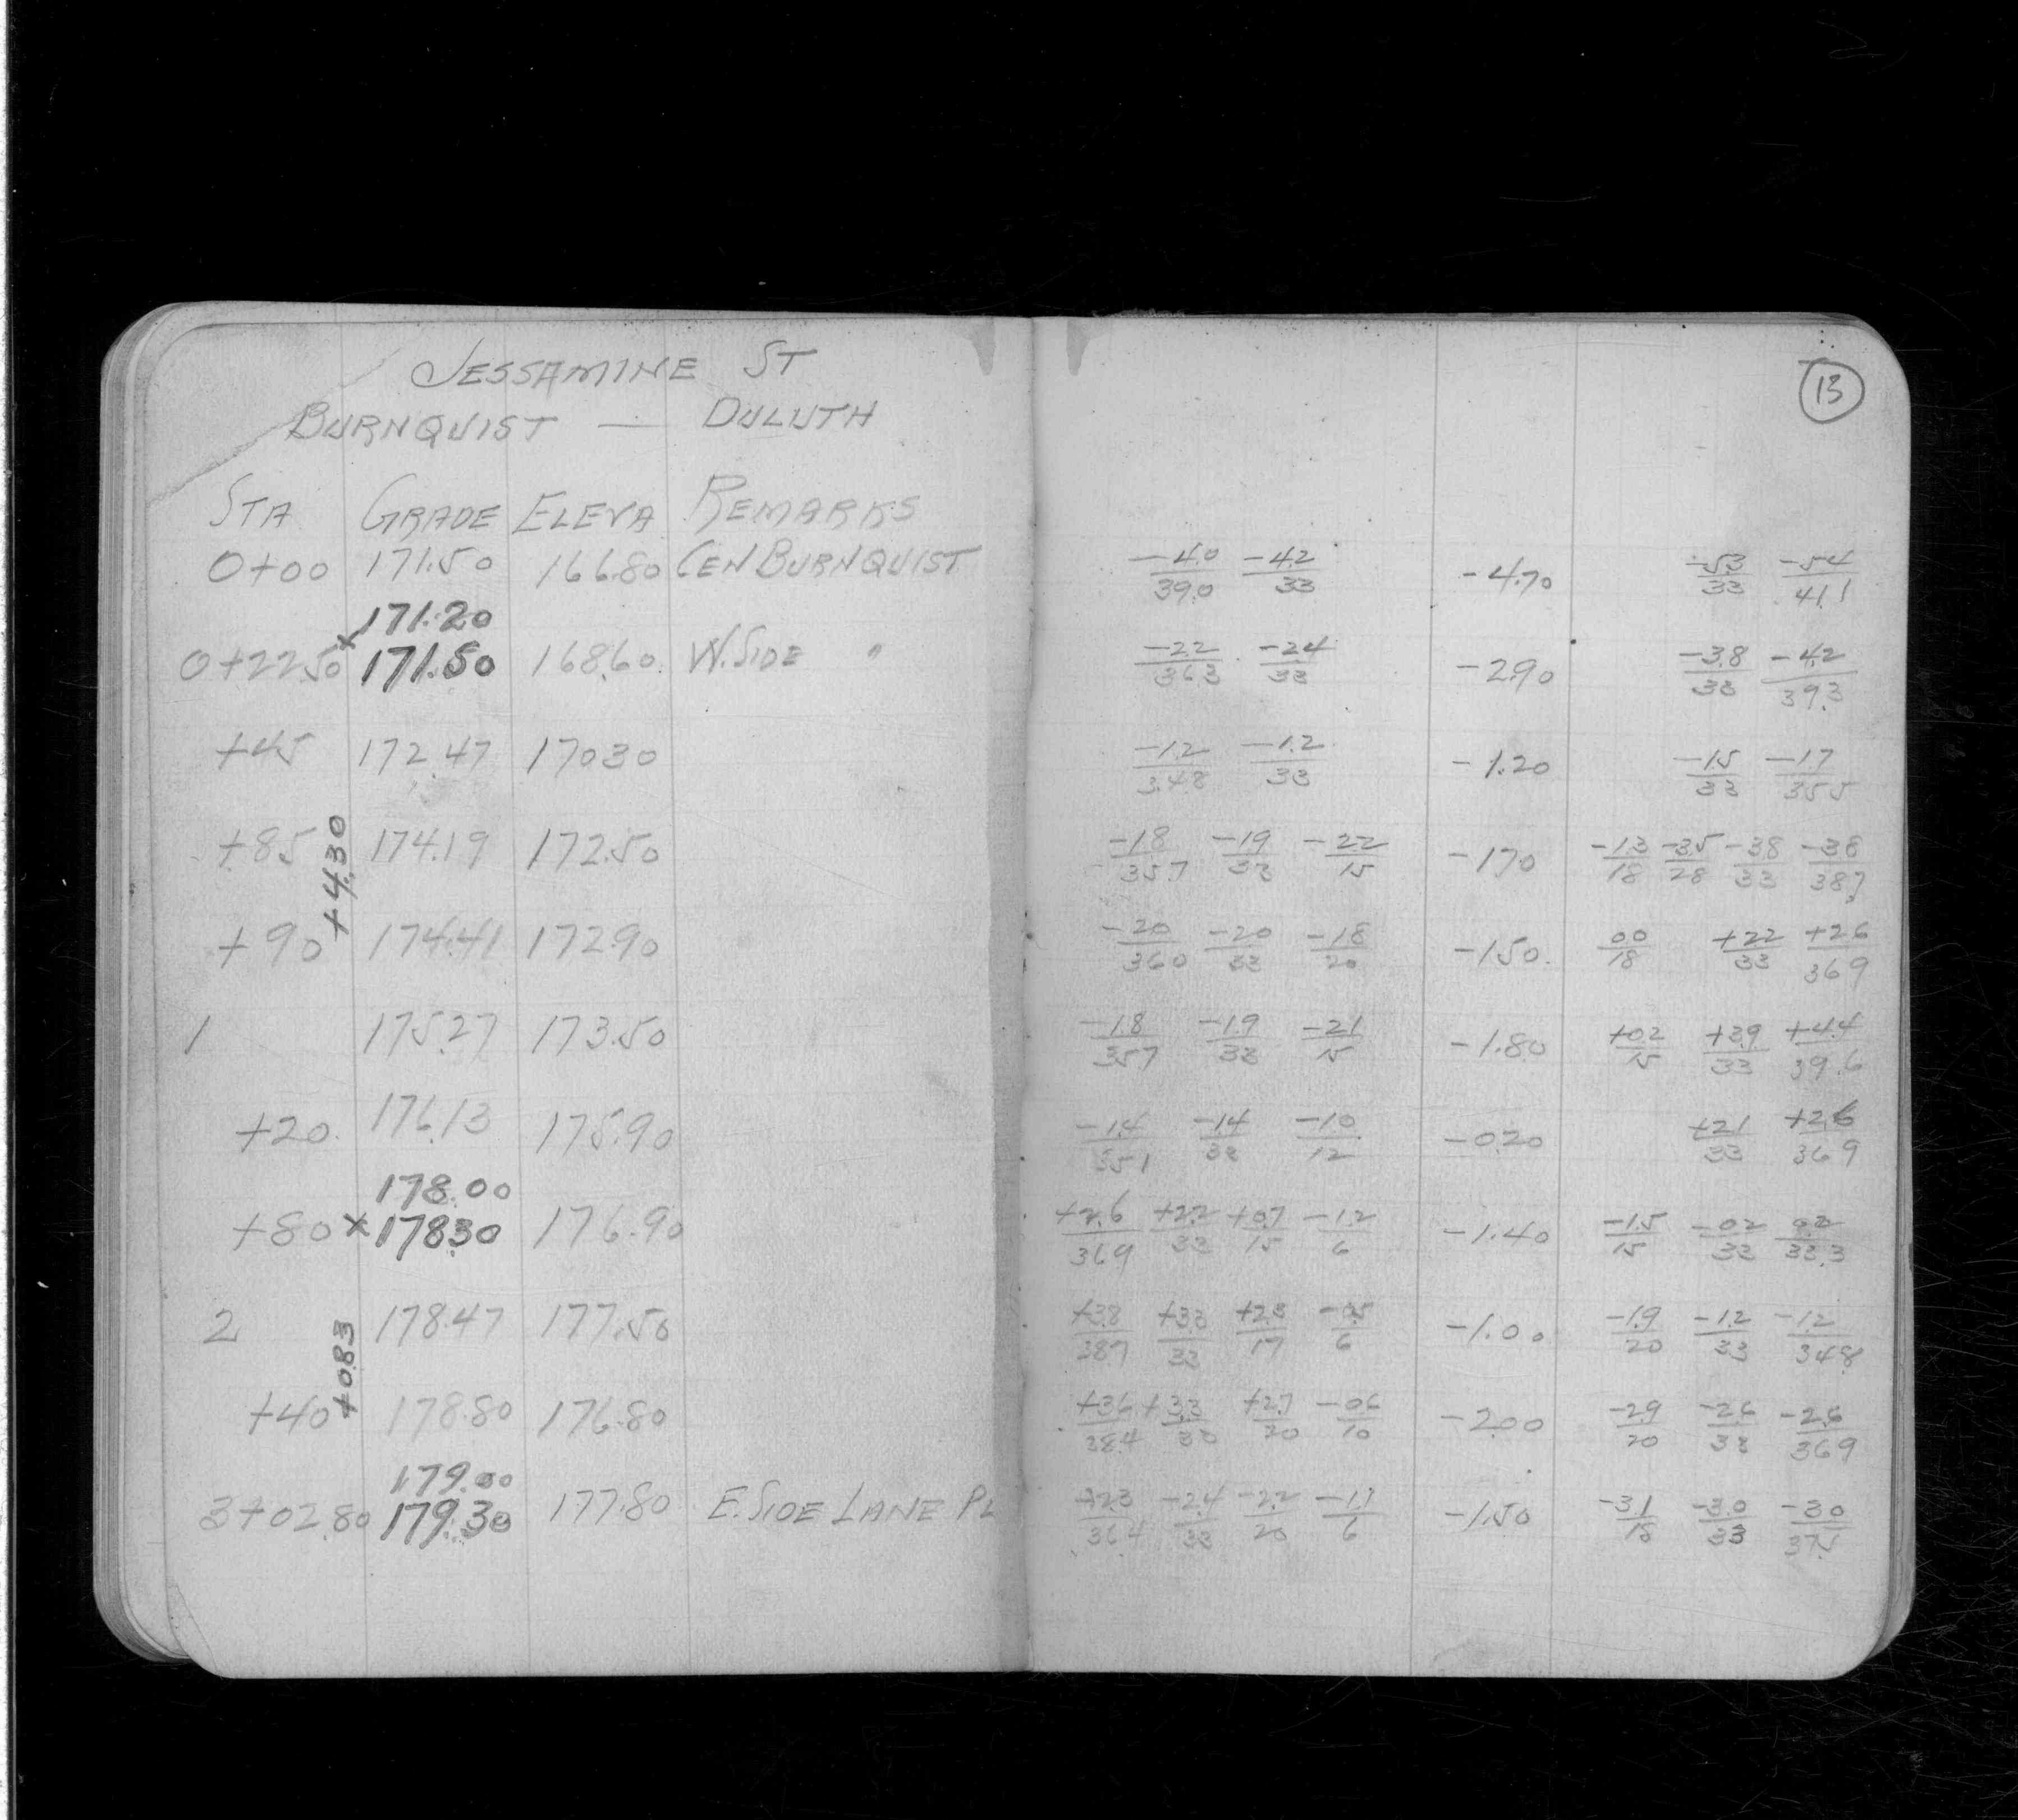 JESSAMINE ST
BURNQUIST — DULUTH
13
STA GRADE ELEVA REMARKS
0+00 171.50 166.80 CEN BURNQUIST -4.0/39.0 -4.2/33 -4.70 -5.3/33 -5.4/41.1
171.20
0+22.50 x 171.50 168.60 W. SIDE " -2.2/36.3 -2.4/33 -2.90 -3.8/33 -4.2/39.3
+45 172.47 170.30 -1.2/34.8 -1.2/33 -1.20 -1.5/33 -1.7/35.5
+85 174.19 172.50 -1.8/35.7 -1.9/33 -2.2/15 -1.70 -1.3/18 -3.5/28 -3.8/33 -3.8/38.7
+4.30
+90 174.41 172.90 -2.0/36.0 -2.0/33 -1.8/20 -1.50 0.0/18 +2.2/33 +2.6/36.9
1 175.27 173.50 -1.8/35.7 -1.9/33 -2.1/15 -1.80 +0.2/15 +3.9/33 +4.4/39.6
+20 176.13 175.90 -1.4/35.1 -1.4/33 -1.0/12 -0.20 +2.1/33 +2.6/36.9
178.00
+80 x 178.30 176.90 +2.6/36.9 +2.2/33 +0.7/15 -1.2/6 -1.40 -1.5/15 -0.2/33 0.2/33.3
2 178.47 177.50 +3.8/38.7 +3.3/33 +2.8/17 -0.5/6 -1.00 -1.9/20 -1.2/33 -1.2/34.8
+0.83
+40 178.80 176.80 +3.6/38.4 +3.3/33 +2.7/20 -0.6/10 -2.00 -2.9/20 -2.6/33 -2.6/36.9
179.00
3+02.80 179.30 177.80 E. SIDE LANE PL +2.3/36.4 -2.4/33 -2.2/20 -1.7/6 -1.50 -3.1/18 -3.0/33 -3.0/37.5